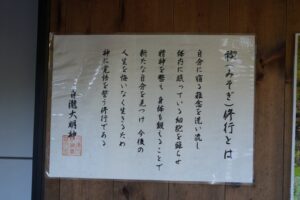 禊(みそぎ)修行とは
自分に宿る雑念を洗い流し
体内に眠っている細胞を蘇らせ
精神を整え身体も鍛えることで
新たな自分を見つけ今後の
人生を悔いなく生きるため
神に覚悟を誓う修行である
白瀧大明神